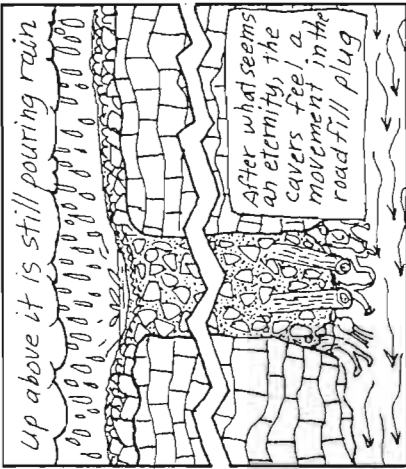 up above it is still pouring rain
After what seems
an eternity, the
cavers feel a
movement in the
road fill plug